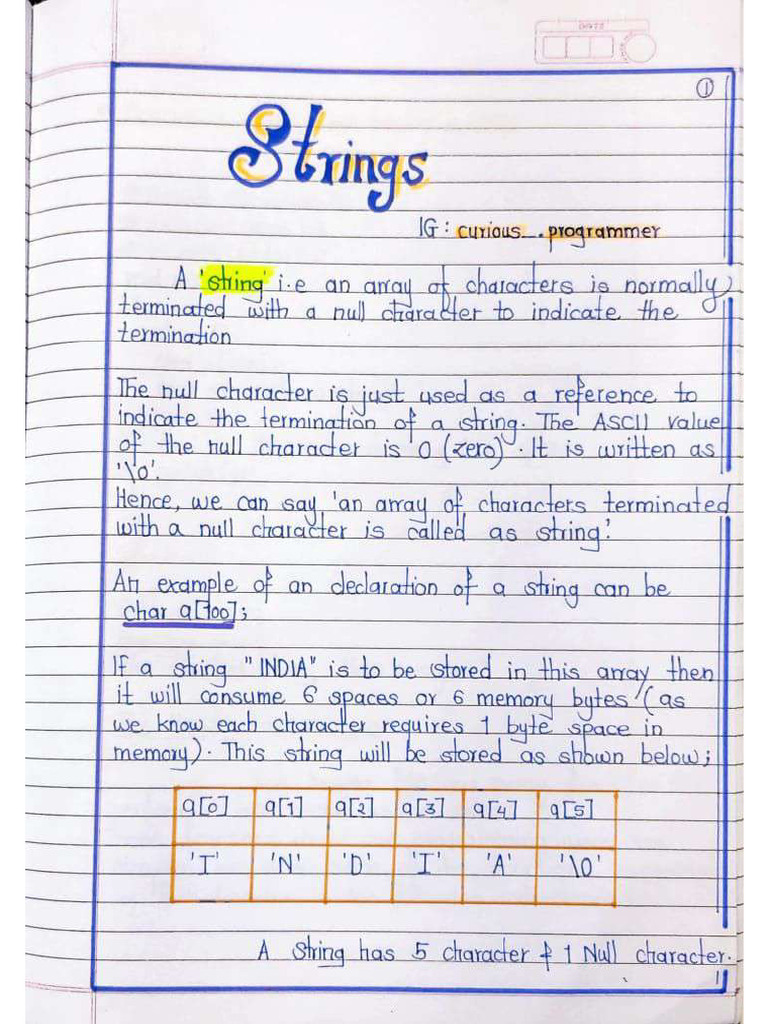 DATE
①
Strings
IG: curious_.programmer
A 'string' i.e an array of characters is normally
terminated with a null character to indicate the
termination
The null character is just used as a reference to
indicate the termination of a string. The ASCII value
of the null character is 0 (zero). It is written as
'\0'.
Hence, we can say 'an array of characters terminated
with a null character is called as string.'
An example of an declaration of a string can be
char a[100];
If a string "INDIA" is to be stored in this array then
it will consume 6 spaces or 6 memory bytes (as
we know each character requires 1 byte space in
memory). This string will be stored as shown below;
a[0] a[1] a[2] a[3] a[4] a[5]
'I' 'N' 'D' 'I' 'A' '\0'
A string has 5 character & 1 Null character.